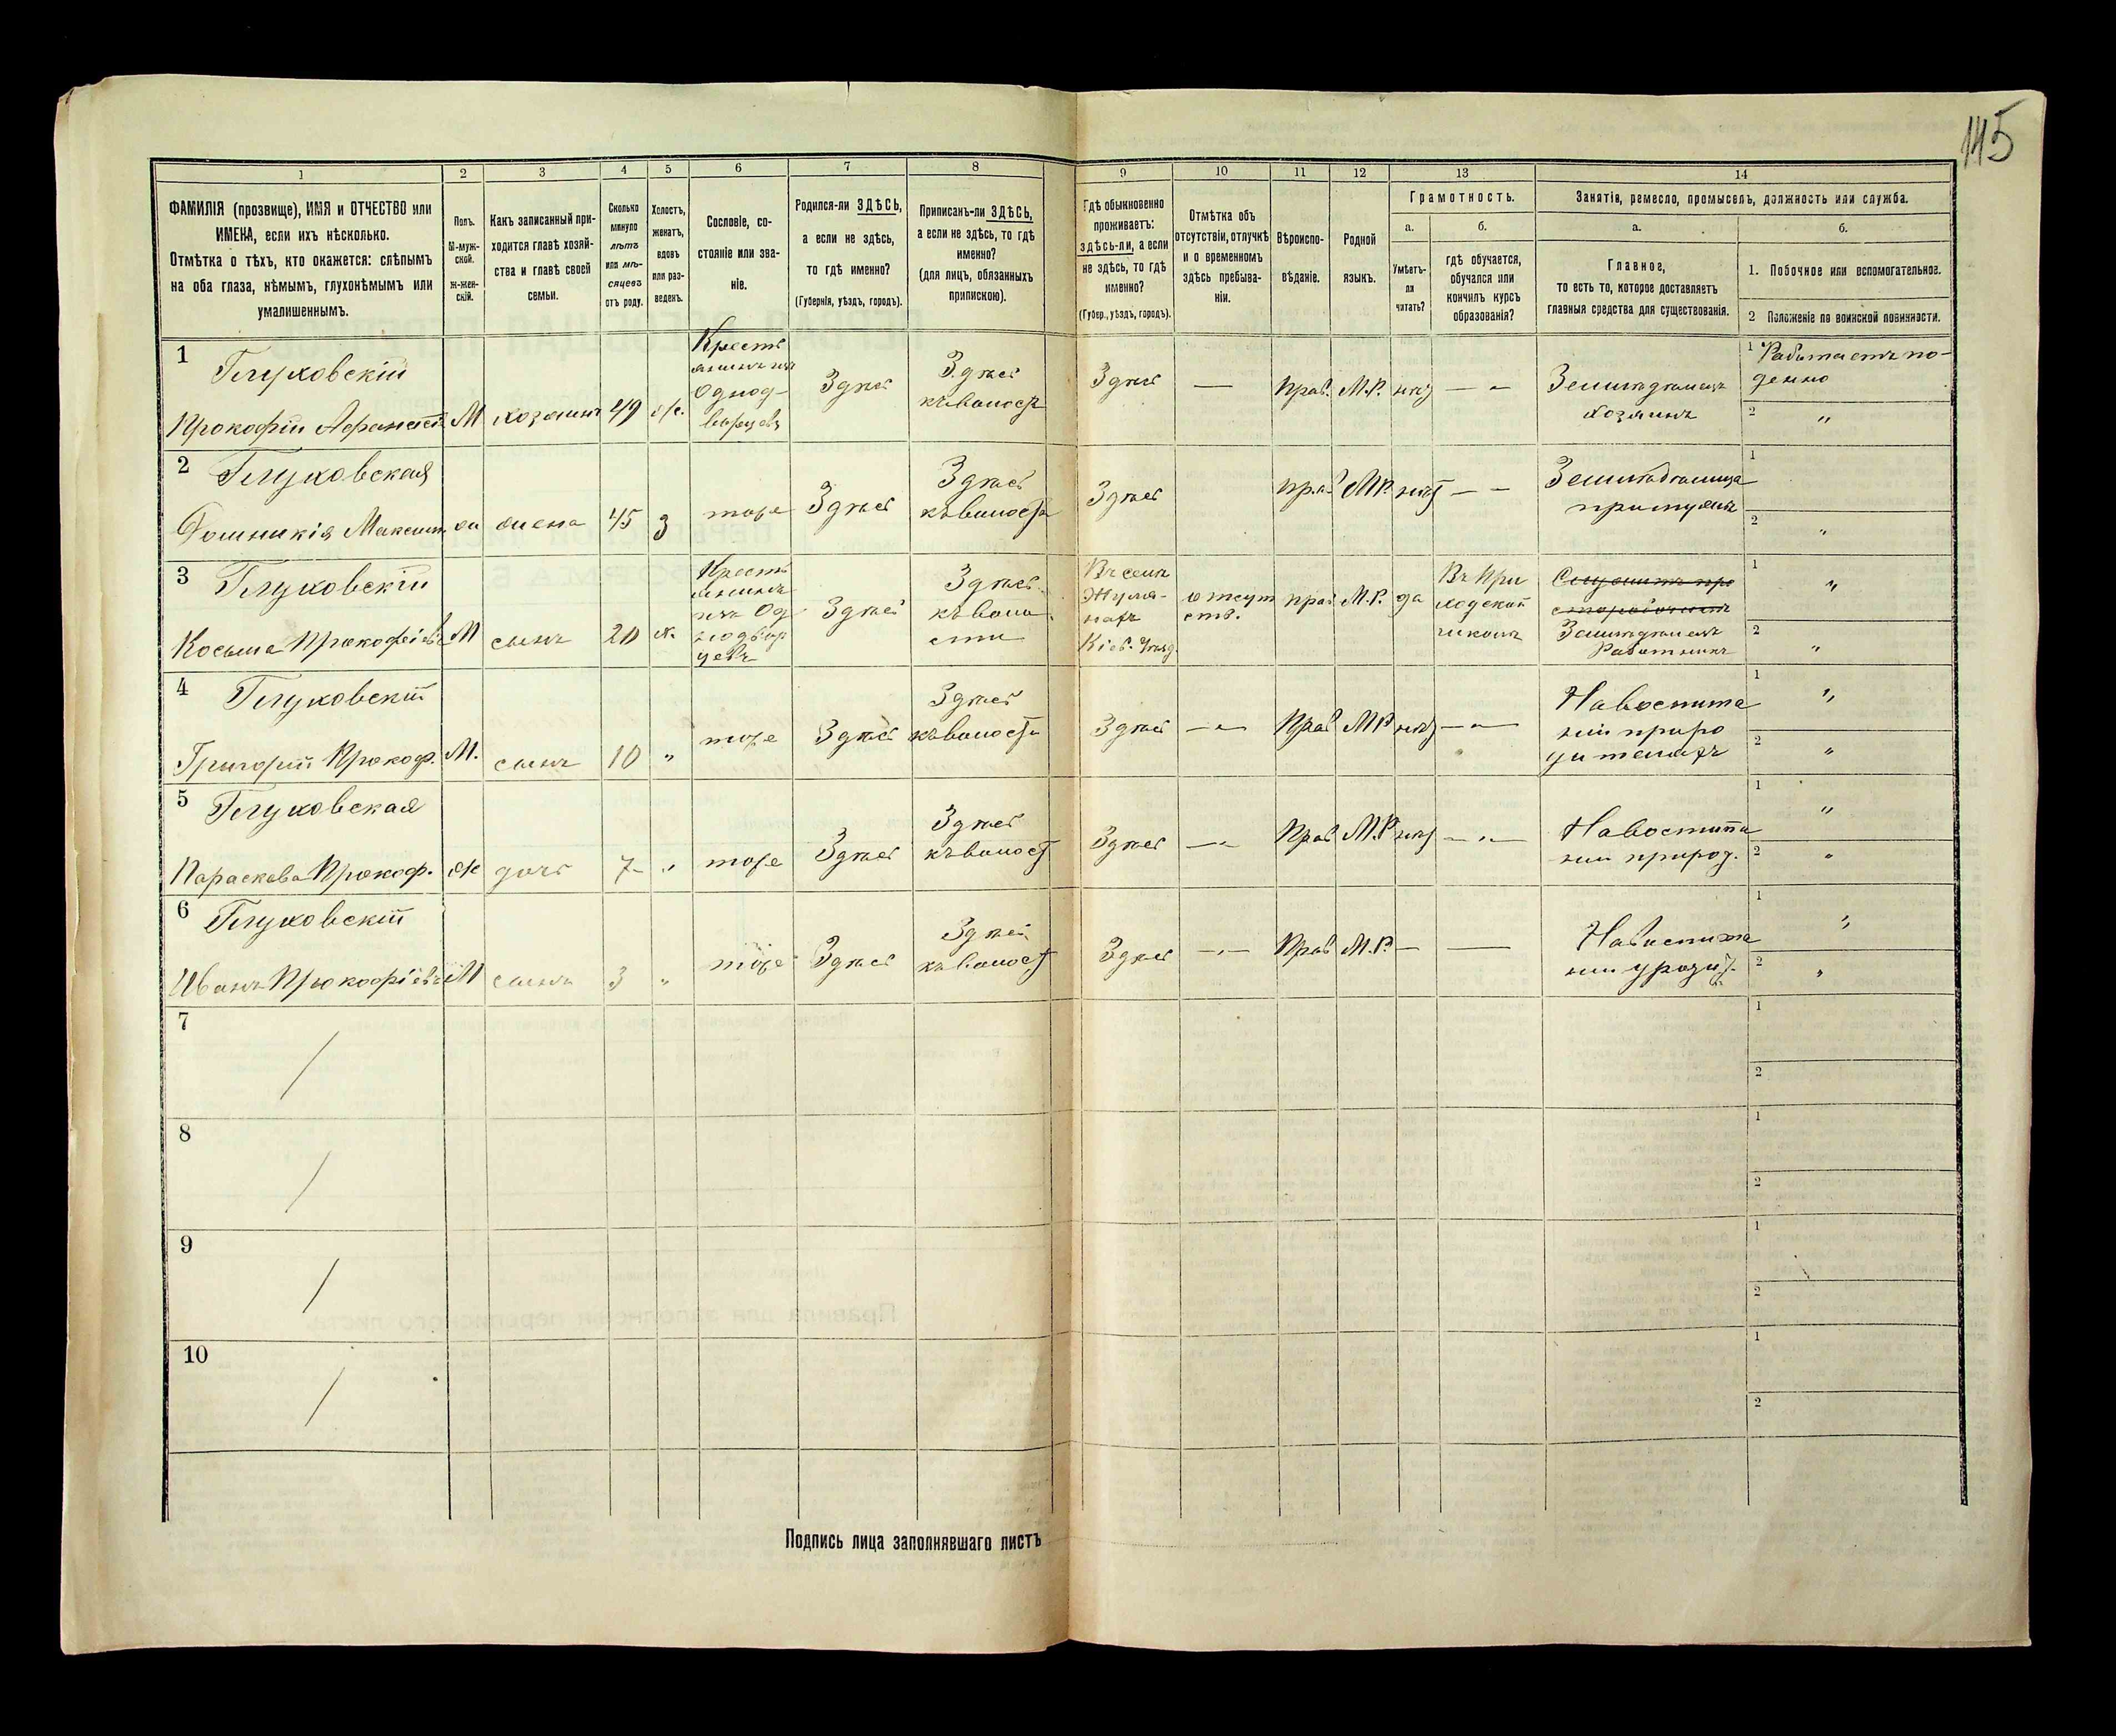 145
1 2 3 4 5 6 7 8 9 10 11 12 13 14
ФАМИЛІЯ (прозвище), ИМЯ и ОТЧЕСТВО или
ИМЕНА, если ихъ нѣсколько.
Отмѣтка о тѣхъ, кто окажется: слѣпымъ
на оба глаза, нѣмымъ, глухонѣмымъ или
умалишеннымъ.
Полъ.
М-муж-
ской.
ж-жен-
скій.
Какъ записанный при-
ходится главѣ хозяй-
ства и главѣ своей
семьи.
Сколько
минуло
лѣтъ
или мѣ-
сяцевъ
отъ роду.
Холостъ,
женатъ,
вдовъ
или раз-
веденъ.
Сословіе, со-
стояніе или зва-
ніе.
Родился-ли ЗДѢСЬ,
а если не здѣсь,
то гдѣ именно?
(Губернія, уѣздъ, городъ).
Приписанъ-ли ЗДѢСЬ,
а если не здѣсь, то гдѣ
именно?
(для лицъ, обязанныхъ
припискою).
Гдѣ обыкновенно
проживаетъ:
здѣсь-ли, а если
не здѣсь, то гдѣ
именно?
(Губер., уѣздъ, городъ).
Отмѣтка объ
отсутствіи, отлучкѣ
и о временномъ
здѣсь пребыва-
ніи.
Вѣроиспо-
вѣданіе.
Родной
языкъ.
Грамотность.
а.
Умѣетъ-
ли
читать?
б.
гдѣ обучается,
обучался или
кончилъ курсъ
образованія?
Занятіе, ремесло, промыселъ, должность или служба.
а.
Главное,
то есть то, которое доставляетъ
главныя средства для существованія.
б.
1. Побочное или вспомогательное.
2 Положеніе по воинской повинности.
1
Глуховскій
Прокофій
М хозяинъ 49 ж.
Крестъ
янинъ изъ
Однод-
ворцевъ
Здѣсь
Здѣсь
къ волости
Здѣсь
—
прав. М.Р. нѣт — „ —
Земледѣлецъ
хозяинъ
1 Работаетъ по-
денно
2 „
2
Глуховская
Максим.
жена 45 З тоже Здѣсь
Здѣсь
къ волости
Здѣсь
прав М.Р. нѣт — —
при мужѣ
1
2 „
3
Глуховскій
Косьма Прокофіевъ М сынъ 20 х.
Крестъ
янинъ
изъ Од
нодвор
цевъ
Здѣсь
Здѣсь
къ воло
сти
Въ селѣ
Кіев. Уѣзд.
отсут
ств.
прав М.Р. да
Въ При
ходской
школѣ
Земледѣлецъ
Работникъ
1 „
2 „
4
Глуховскій
Григорій Прокоф. М. сынъ 10 „ тоже Здѣсь
Здѣсь
къ волости
Здѣсь — „ — Прав М.Р нѣт — „ —
На воспита
ніи при ро
дителяхъ
1 „
2 „
5
Глуховская
Параскева Прокоф. ж дочь 7 „ тоже Здѣсь
Здѣсь
къ волост
Здѣсь — „ — Прав М.Р нѣт — „ —
На воспита
ніи при род.
1 „
2 „
6
Глуховскій
Иванъ Прокофіевъ М сынъ 3 „ тоже Здѣсь
Здѣсь
къ волост
Здѣсь — „ — Прав М.Р. — —
На воспита
ніи у родит.
1 „
2 „
7
1
2
8
1
2
9
1
2
10
1
2
Подпись лица заполнявшаго листъ